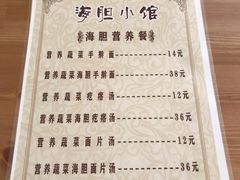 海胆小馆
海胆营养餐
营养蔬菜手擀面————14元
营养蔬菜海胆手擀面————38元
营养蔬菜疙瘩汤————12元
营养蔬菜海胆疙瘩汤————36元
营养蔬菜面片汤————12元
营养蔬菜海胆面片汤————36元